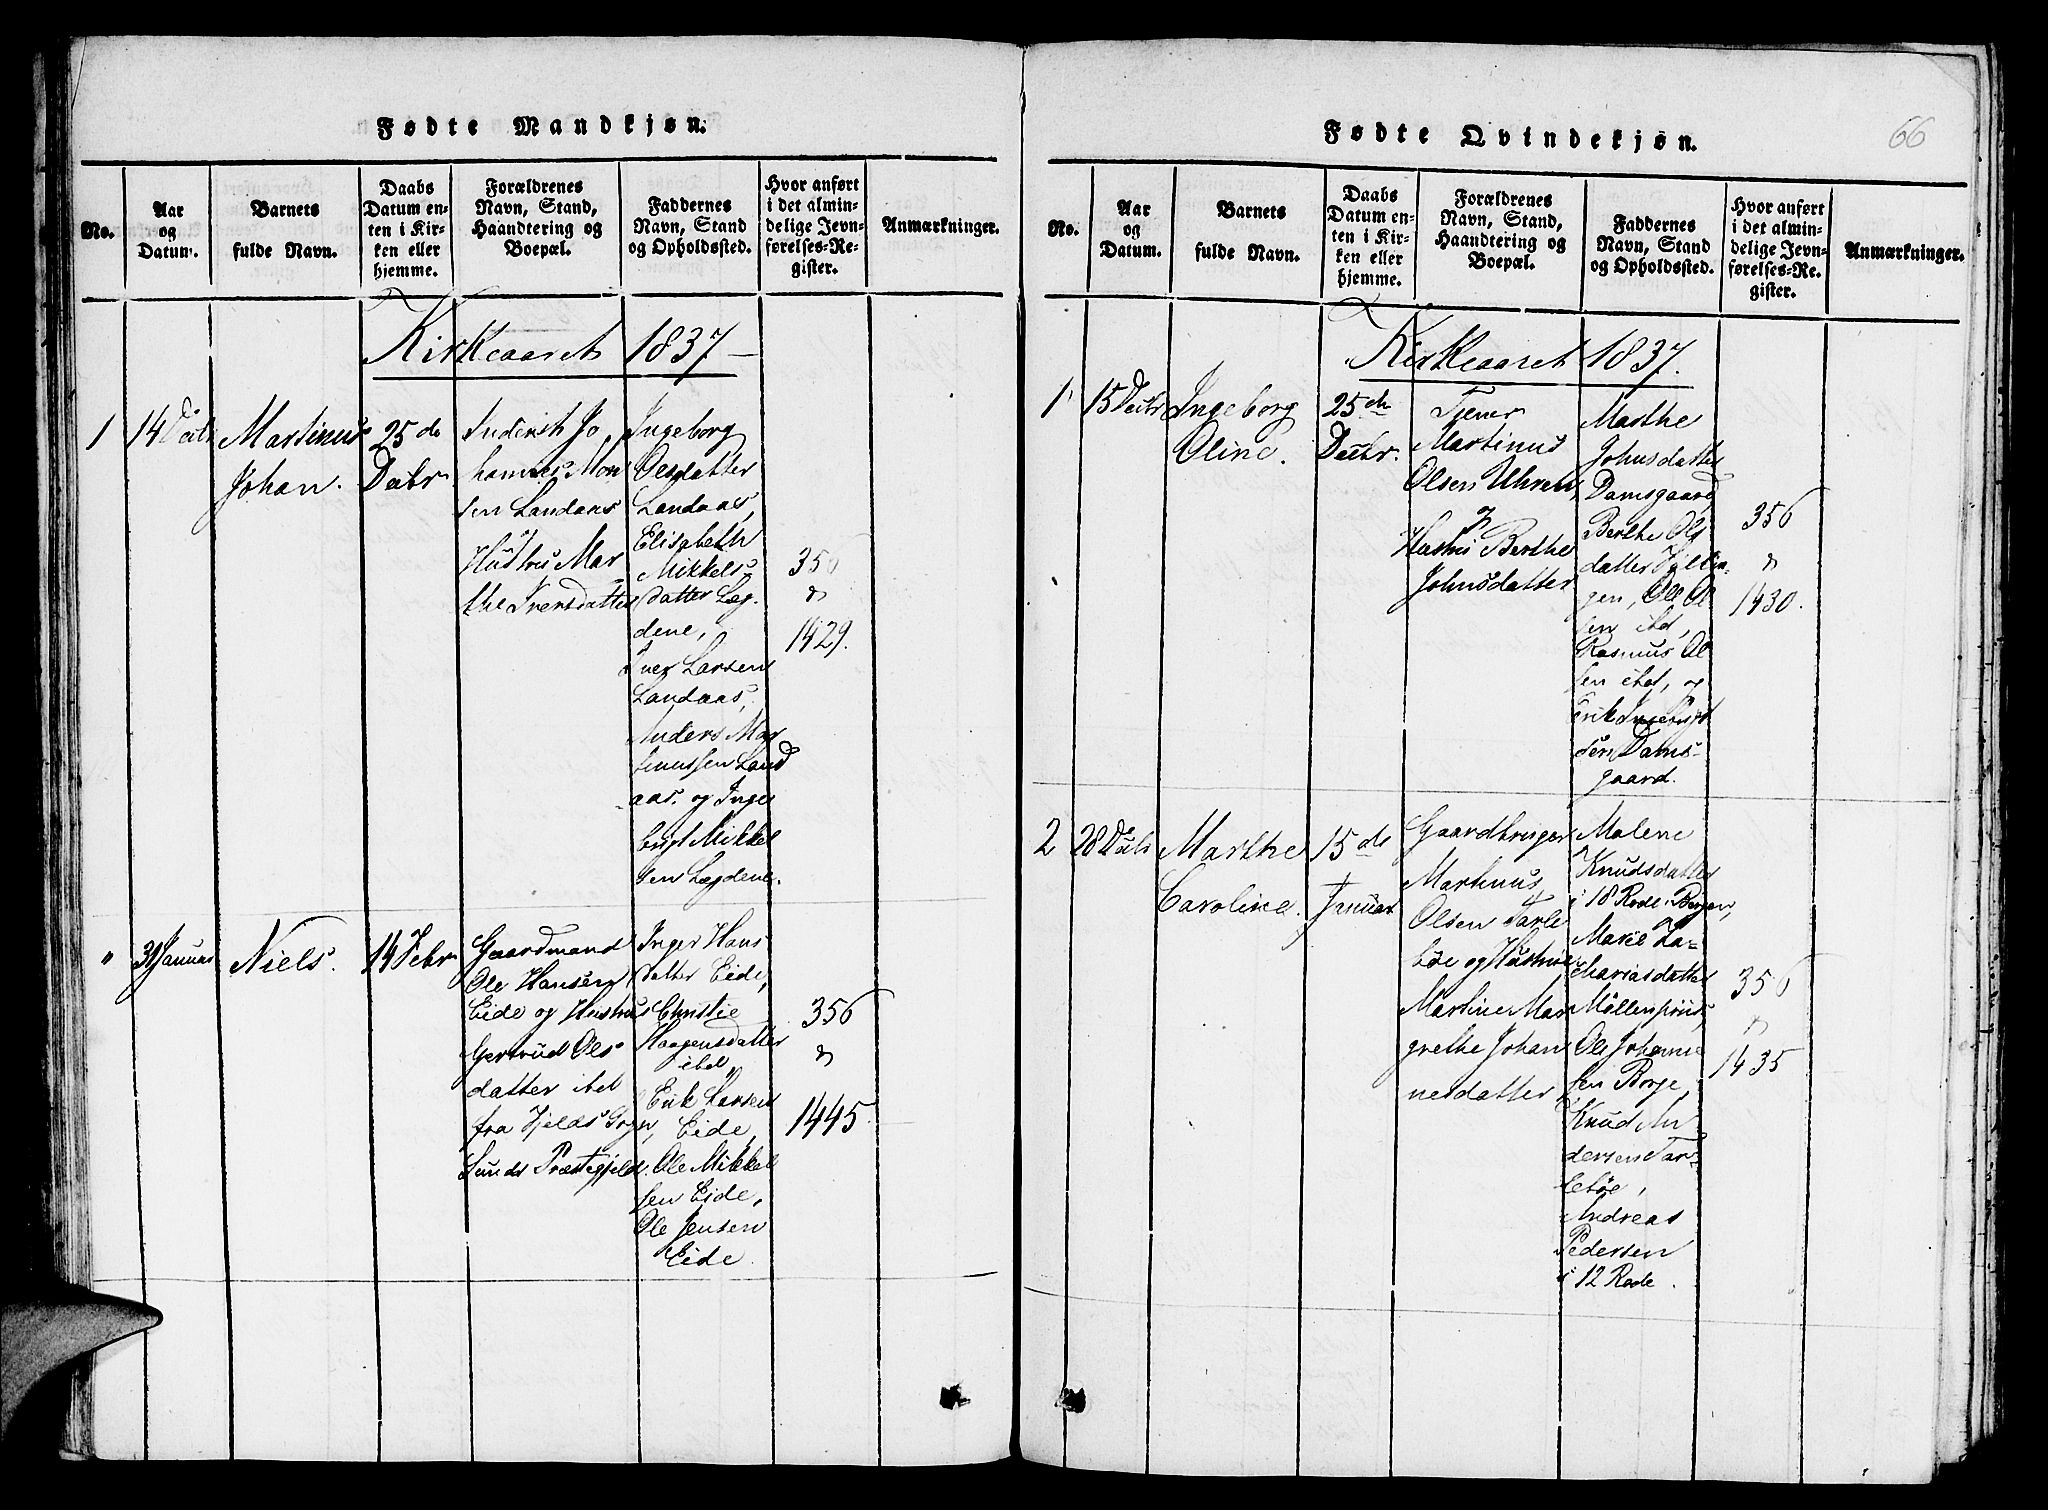 Fødte Mandkjøn.
No.
Aar
og
Datum.
Barnets
fulde Navn.
Daabs
Datum en-
ten i Kir-
ken eller
hjemme.
Forældrenes
Navn, Stand,
Haandtering og
Boepæl.
Faddernes
Navn, Stand
og Opholdssted.
Hvor anført
i det almin-
delige Jevn-
førelses-Re-
gister.
Anmærkninger.
Kirkeaaret 1837
1
14 Decbr
Martinus
Johan.
25de
Decbr
Inderst Jo
hannes Mon
sen Landaas
Hustrue Mar
the Iversdatter
Ingeborg
Olsdatter
Landaas,
Elisabeth
Mikkels-
datter Læg-
dene,
Iver Larsen
Landaas,
Anders Mar
tinussen Land
aas. og Inge
brigt Mikkel
sen Lægdene.
356
&
1429.
"
31 Januar
Niels.
14 Febr
Gaardmand
Ole Hansen
Eide og Hustrue
Gertrud Ols
datter ibd
fra Hjelds Sogn,
Sunds Præstegjeld.
Inger Hans
datter Eide,
Christie
Haagensdatter
ibd,
Erik Larsen
Eide,
Ole Mikkel
sen Eide,
Ole Jensen
Eide.
356
&
1445
Fødte Qvindekjøn.
66
No.
Aar
og
Datum.
Barnets
fulde Navn.
Daabs
Datum en-
ten i Kir-
ken eller
hjemme.
Forældrenes
Navn, Stand,
Haandtering og
Boepæl.
Faddernes
Navn, Stand
og Opholdssted.
Hvor anført
i det almin-
delige Jevn-
førelses-Re-
gister.
Anmærkninger.
Kirkeaaret 1837.
1
15 Decbr
Ingeborg
Oline.
25de
Decbr.
Tjener
Martinus
Olsen Uhren,
Hustru Berthe
Johnsdatter
Marthe
Johnsdatter
Damsgaard,
Berthe Ols
datter
Ole Ol
sen ibd,
Rasmus Ol
sen ibd, og
Erik Ingebrigt
sen Dams-
gaard.
356
&
1430.
2
28 Decbr
Marthe
Caroline.
15de
Januar
Gaardbruger
Martinus
Olsen Tarle
bøe og Hustrue
Martine Mar
grethe Johan
nesdatter
Malene
Knudsdatter
i 18 Rode i Bergen,
Marie Za-
chariasdatter
Møllenpriis,
Ole Johanne
sen Borge,
Knud An
dersen Tar-
lebøe,
Andreas
Pedersen
i 12 Rode.
356
&
1435